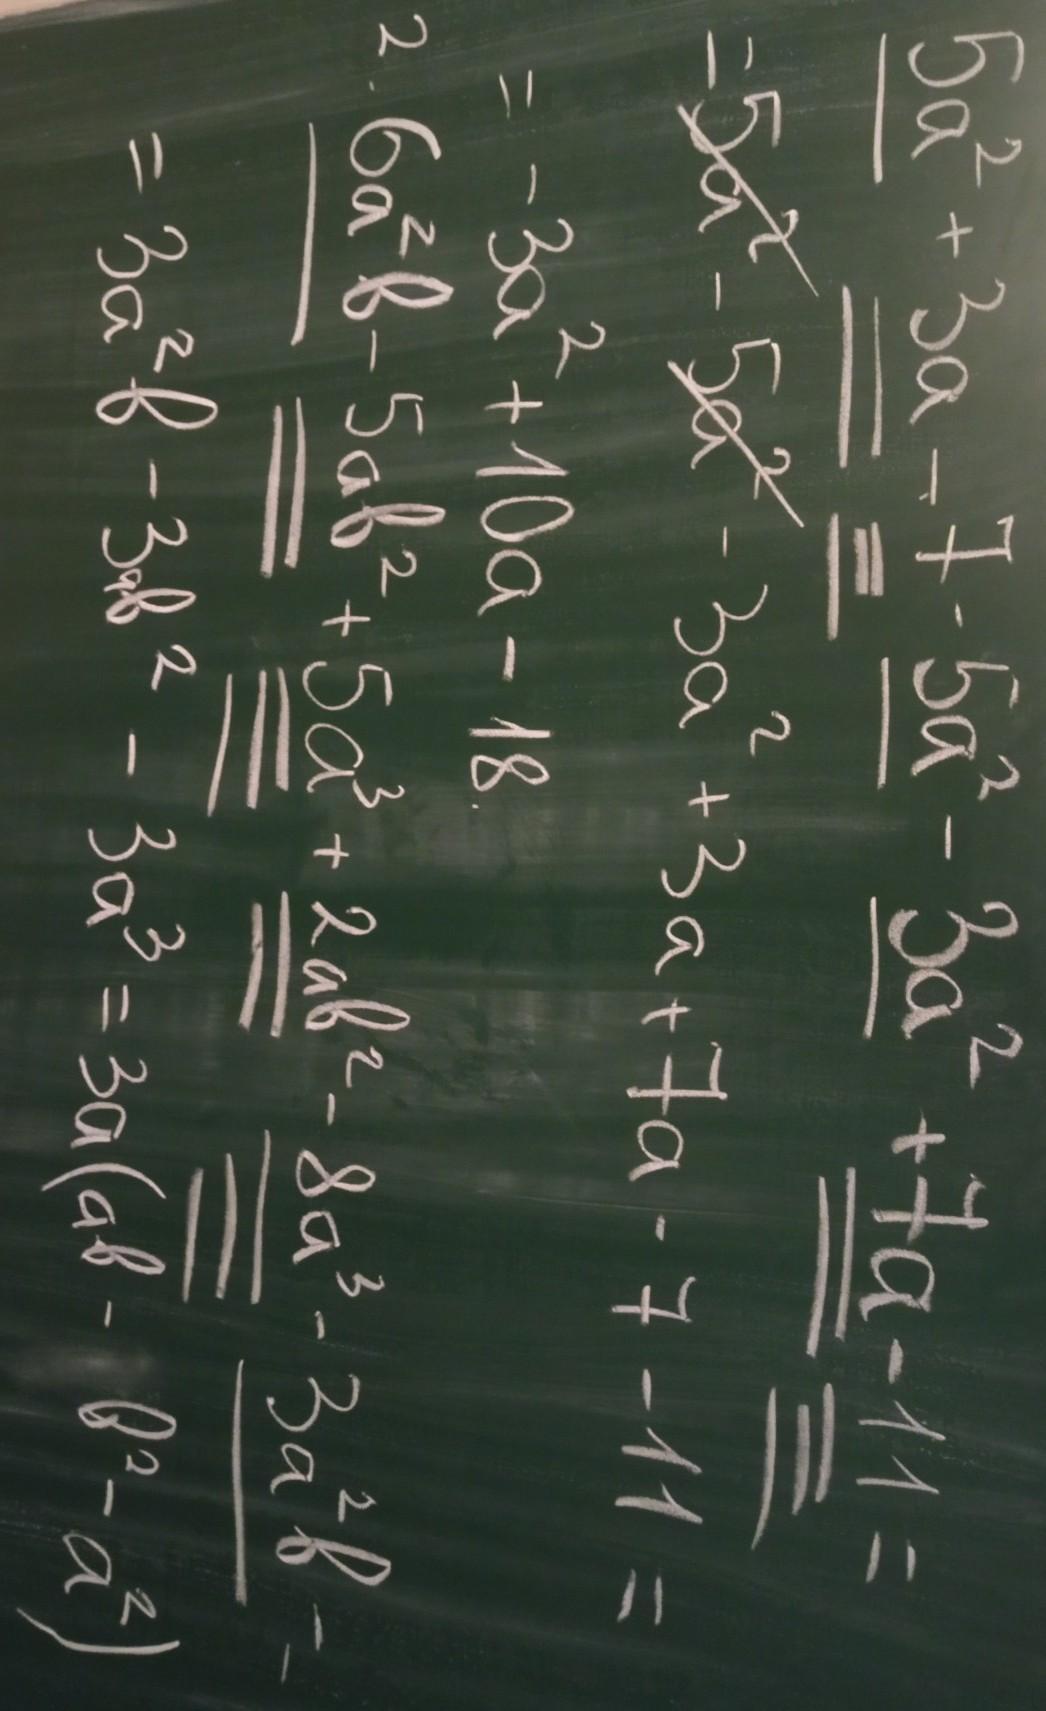 5a² + 3a - 7 - 5a² - 3a² + 7a - 11 =
= 5a² - 5a² - 3a² + 3a + 7a - 7 - 11 =
= - 3a² + 10a - 18.
2. 6a²b - 5ab² + 5a³ + 2ab² - 8a³ - 3a²b =
= 3a²b - 3ab² - 3a³ = 3a(ab - b² - a²)